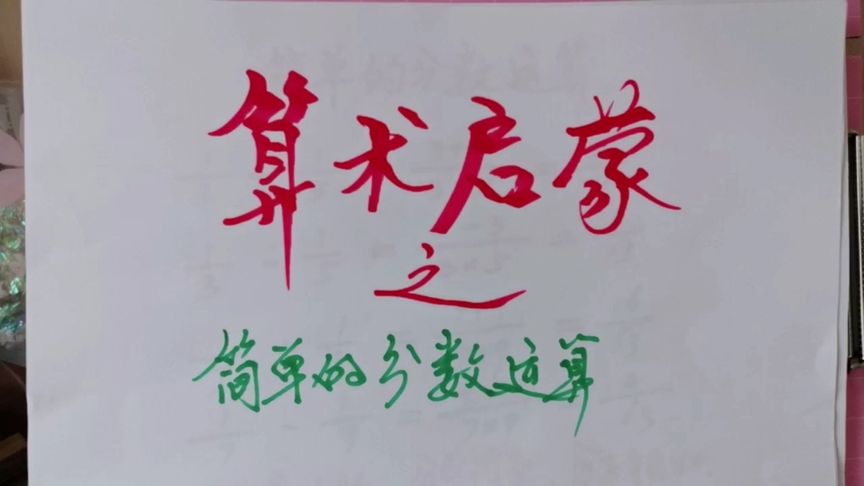 算术启蒙
之
简单的分数运算